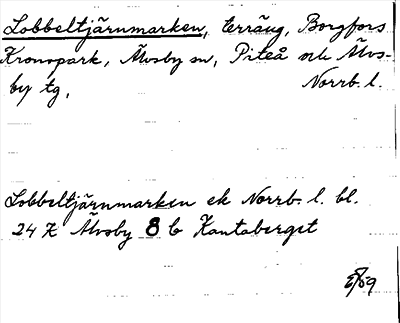 Lobbeltjärnmarken, terräng, Borgfors
Kronopark, Älvsby sn, Piteå och Älvs-
by tg, Norrb. l.
Lobbeltjärnmarken ek Norrb. l. bl.
24 K Älvsby 8 b Kantaberget
59